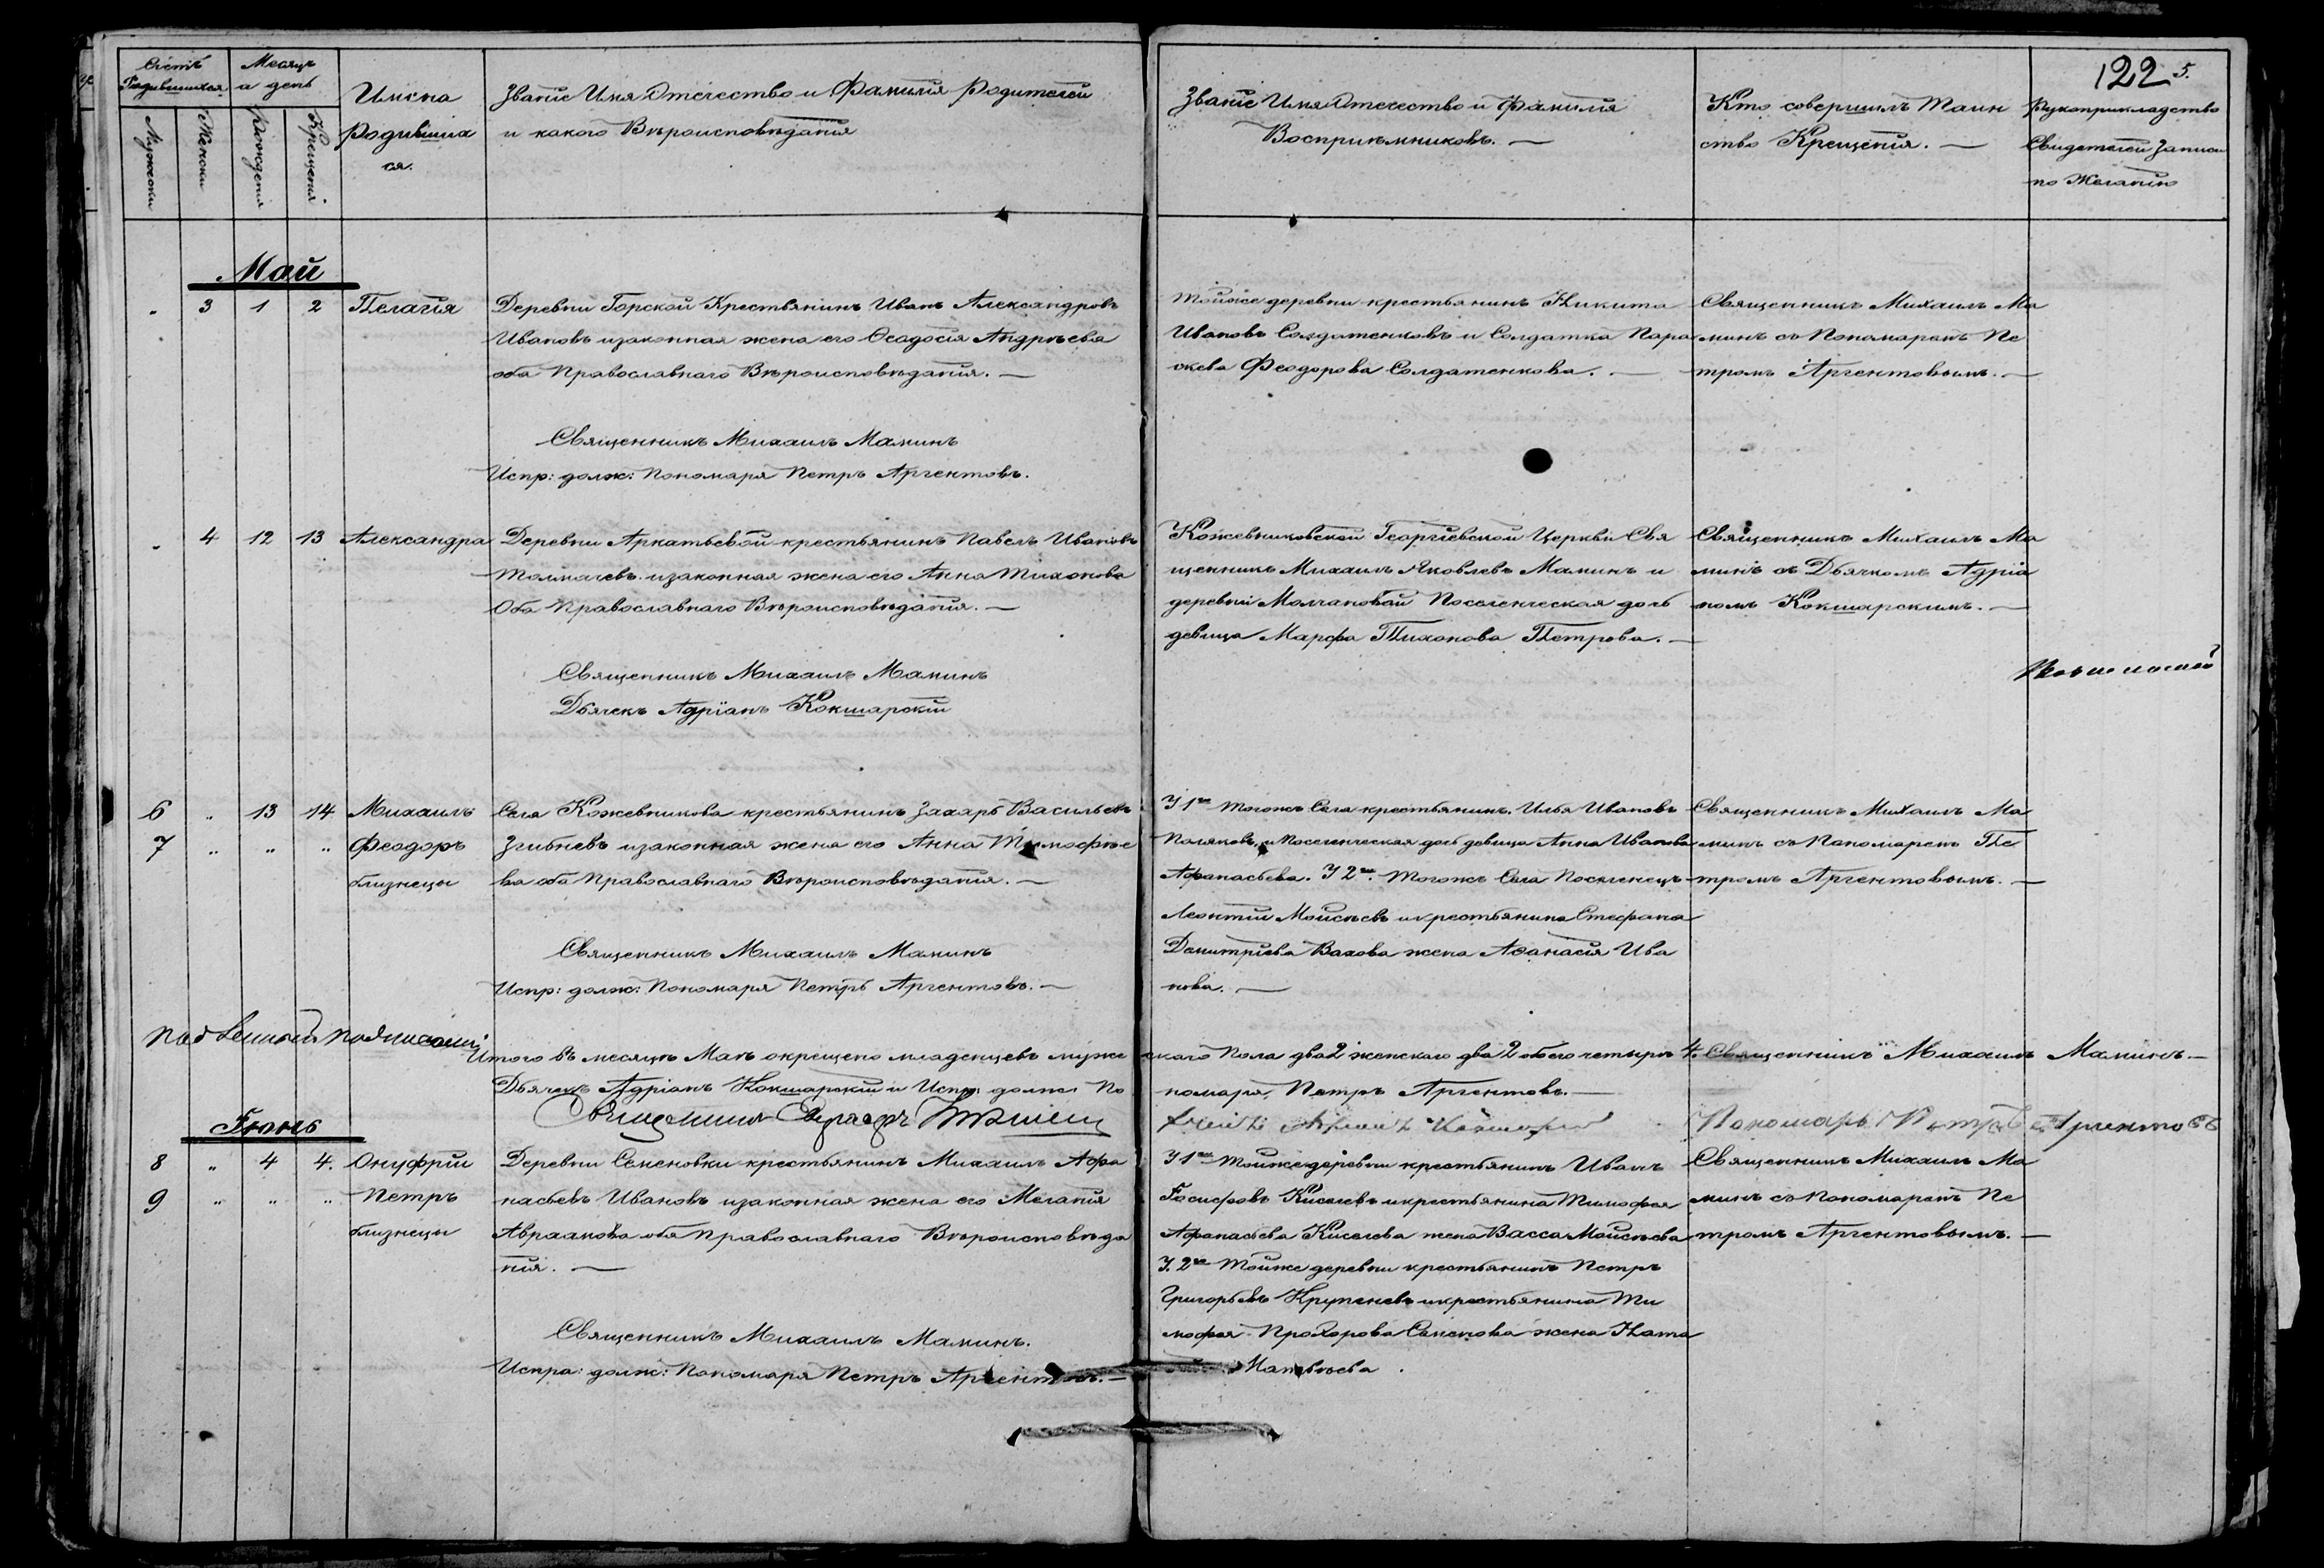 Счетъ Родившихся
Месяцъ и день
Мужески
Женски
Рожденія
Крещенія
Имена
родивших
ся.
Званіе Имя Отечество и Фамилія родителей
и какого Вѣроисповѣданія
Званіе Имя Отечество и Фамилія
Воспріемниковъ. —
Кто совершилъ Таин
ство Крещенія. —
Рукоприкладство
Свидетелей Записи
по Желанію
122
5.
Май
3 1 2 Пелагія
Деревни Горской Крестьянинъ Иванъ Александровъ
Ивановъ изаконная жена его Ѳеодосія Андрѣева
оба Православнаго Вѣроисповѣданія. —
Священникъ Михаилъ Маминъ
Испр: долж: Пономаря Петръ Аргентовъ.
Тойже деревни крестьянинъ Никита
Ивановъ Солдатенковъ и Солдатка Пара
скева Феодорова Солдатенкова. —
Священникъ Михаилъ Ма
минъ съ Пономаремъ Пе
тромъ Аргентовымъ. —
4 12 13 Александра
Деревни Аркатьевой крестьянинъ Павелъ Ивановъ
Толмачевъ изаконная жена его Анна Тихонова
Оба Православнаго Вѣроисповѣданія. —
Священникъ Михаилъ Маминъ
Дьячекъ Адріанъ Кокшарскій
Кожевниковской Георгіевской Церкви Свя
щенникъ Михаилъ Яковлевъ Маминъ и
деревни Молчановой Поселенческая дочь
девица Марфа Тихонова Петрова. —
Священникъ Михаилъ Ма
минъ съ Дьячкомъ Адріа
номъ Кокшарскимъ. —
6 „ 13 14 Михаилъ
7 „ „ „ Феодоръ
близнецы
Села Кожевникова крестьянинъ Захаръ Васильевъ
Згибневъ изаконная жена его Анна Тимофѣе
ва оба Православнаго Вѣроисповѣданія. —
Священникъ Михаилъ Маминъ
Испр: долж: Пономаря Петръ Аргентовъ. —
У 1го тогожъ Села крестьянинъ Илья Ивановъ
Поляковъ и Поселенческая дочь девица Анна Иванова
Афанасьева. У 2го. Тогожъ Села Поселенецъ
Леонтій Моисѣевъ и крестьянина Стефана
Димитріева Вахова жена Афанасія Ива
нова. —
Священникъ Михаилъ Ма
минъ съ Пономаремъ Пе
тромъ Аргентовымъ. —
Итого въ месяцѣ Маѣ окрещено младенцевъ муже
скаго пола два 2 женскаго два 2 обоего четыре 4. Священникъ Михаилъ Маминъ —
Дьячекъ Адріанъ Кокшарскій и Испр: долж: По
номаря, Петръ Аргентовъ. —
Пономарь Петръ Аргентовъ
Іюнь
8 „ 4 4. Онуфрій
9 „ „ „ Петръ
близнецы
Деревни Семеновки крестьянинъ Михаилъ Афа
насьевъ Ивановъ изаконная жена его Меланія
Авраамова оба Православнаго Вѣроисповѣда
нія. —
Священникъ Михаилъ Маминъ.
Испра: долж: Пономаря Петръ Аргентовъ. —
У 1го Тойже деревни крестьянинъ Иванъ
Іосифовъ Киселевъ и крестьянина Тимофея
Афанасьева Киселева жена Васса Моисѣева
У. 2го Тойже деревни крестьянинъ Петръ
Григорьевъ Крупеневъ и крестьянина Ти
мофея Прохорова Семенова жена Ната
Матвѣева.
Священникъ Михаилъ Ма
минъ съ Пономаремъ Пе
тромъ Аргентовымъ. —